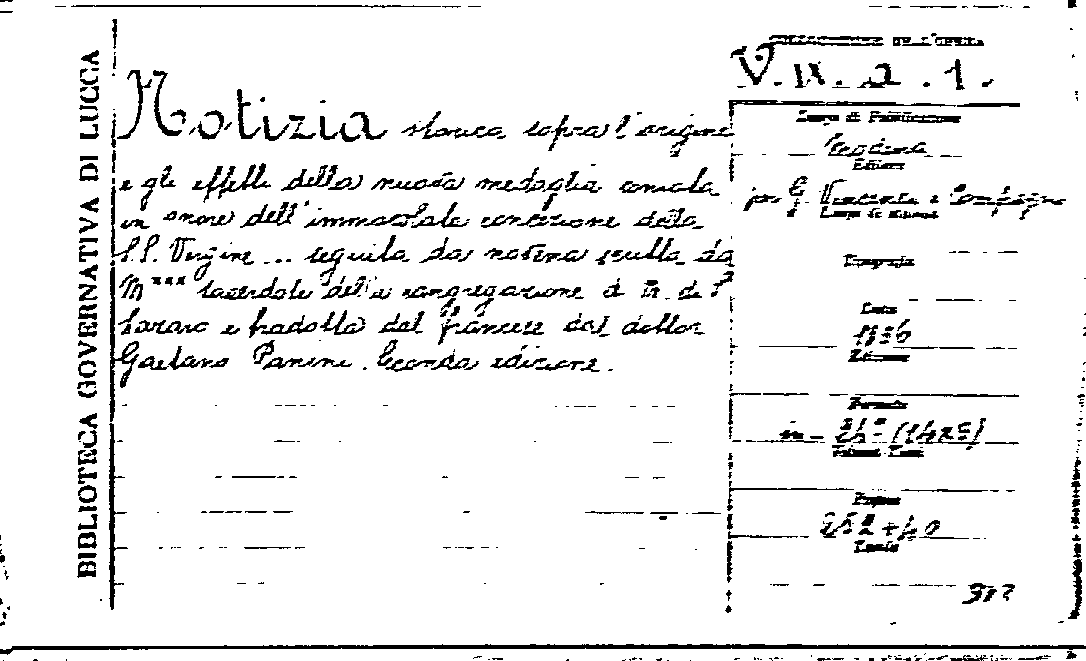 BIBLIOTECA GOVERNATIVA DI LUCCA
Notizia storica sopra l'origine
e gli effetti della nuova medaglia coniata
in onore dell'immacolata concezione della
S.S. Vergine ... seguita da novena scritta da
M*** sacerdote della congregazione d
Lazaro e tradotta dal francese dal dottor
Gaetano Panini. Seconda edizione.
COLLOCAZIONE DELL'OPERA
V. IX. 2. 1.
Luogo di Pubblicazione
Modena
Editore
per G. Vincenzi e Compagno
Luogo di stampa
Tipografia
Data
1836
Edizione
Formato
in-
Volumi
Pagine
252+40
Lunis